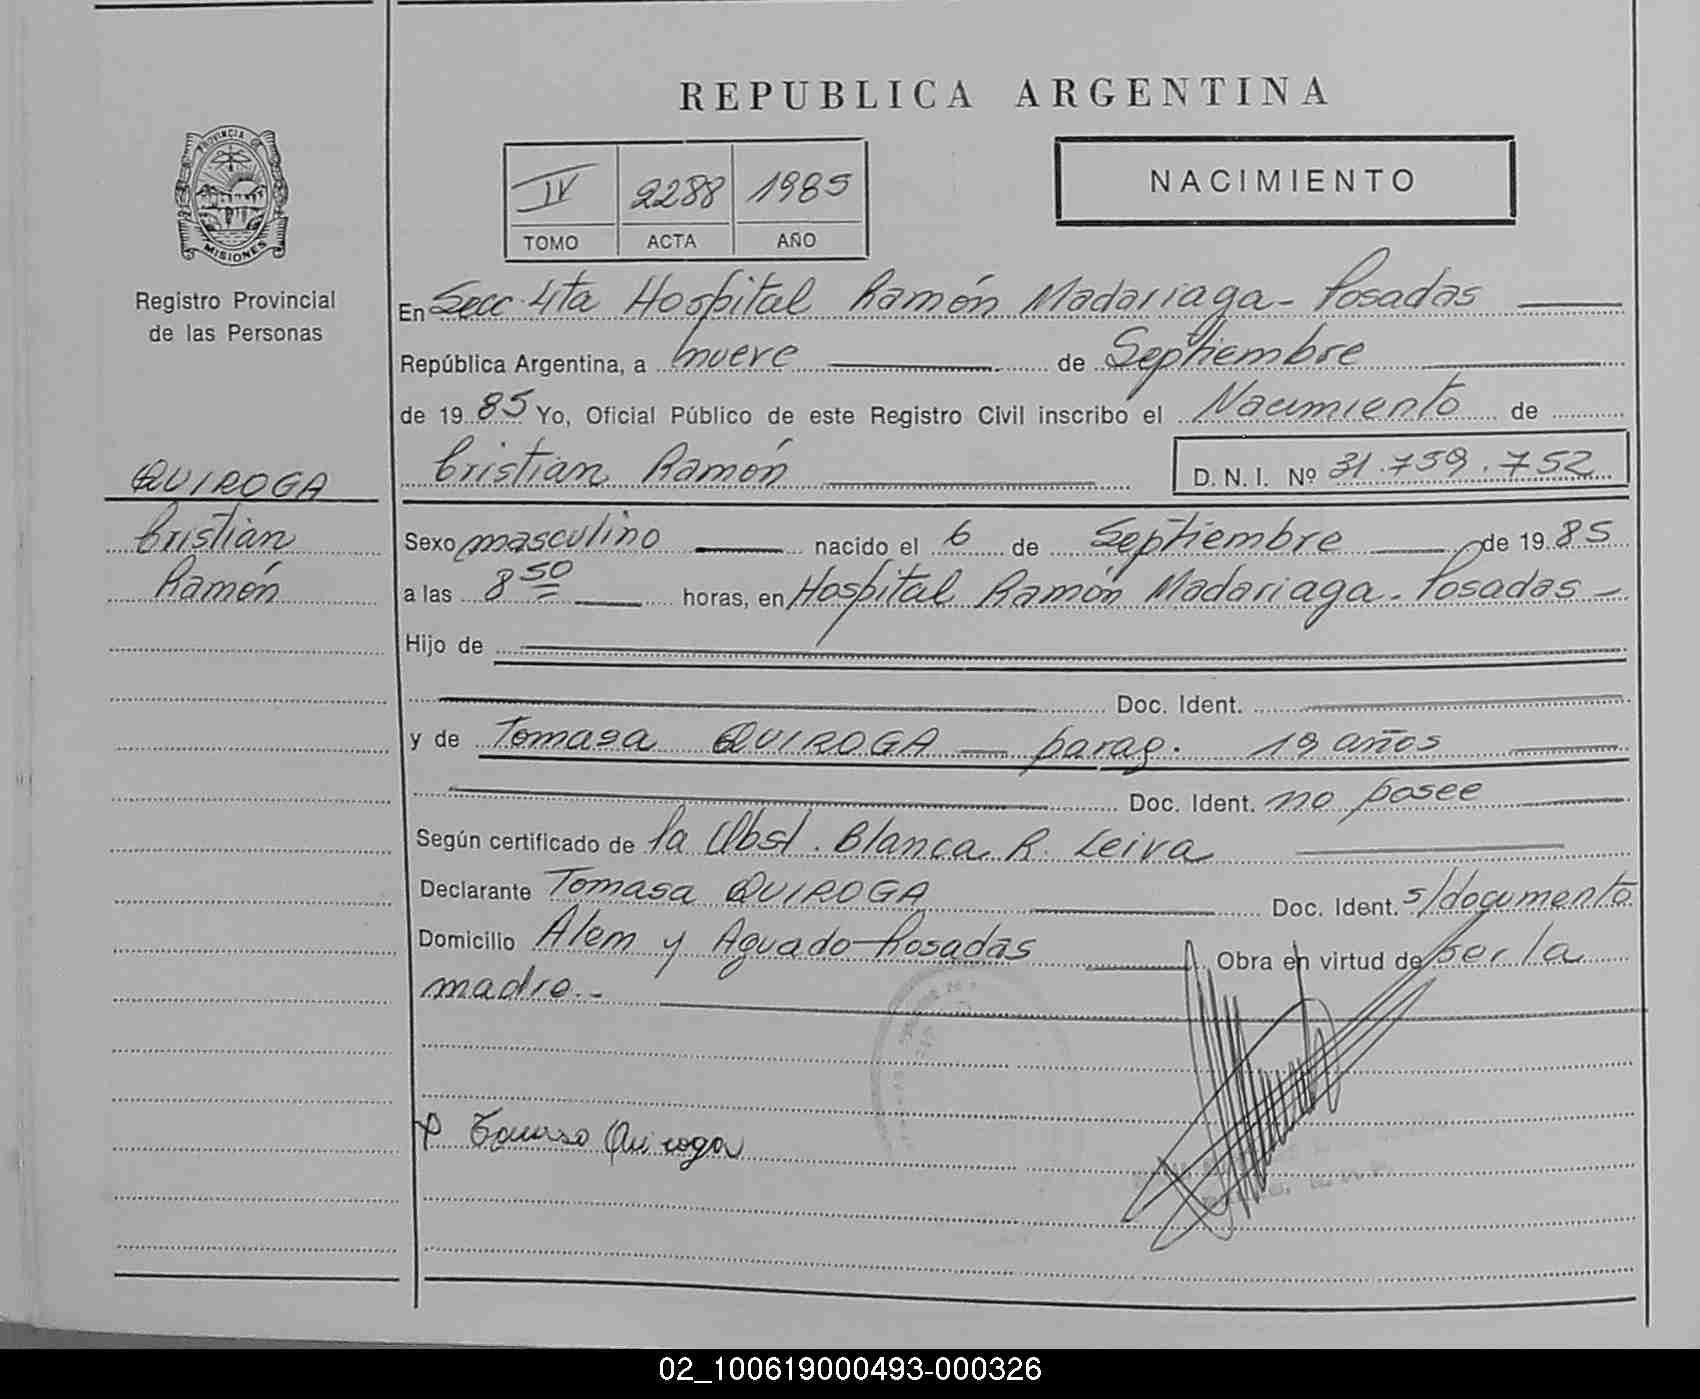 REPUBLICA ARGENTINA
PROVINCIA DE
MISIONES
Registro Provincial
de las Personas
IV 2288 1985
TOMO ACTA AÑO
NACIMIENTO
En Secc. 4ta Hospital Ramón Madariaga - Posadas
República Argentina, a nueve de Septiembre
de 1985 Yo, Oficial Público de este Registro Civil inscribo el Nacimiento de
Cristian Ramón D. N. I. Nº 31.759.752
QUIROGA
Cristian
Ramón
Sexo masculino nacido el 6 de Septiembre de 1985
a las 8 50 horas, en Hospital Ramón Madariaga - Posadas -
Hijo de
Doc. Ident.
y de Tomasa QUIROGA — parag. 19 años
Doc. Ident. no posee
Según certificado de la Obst. Blanca R. Leiva
Declarante Tomasa QUIROGA Doc. Ident. s/documento
Domicilio Alem y Aguado - Posadas Obra en virtud de ser la
madre.-
Quiroga
02_100619000493-000326